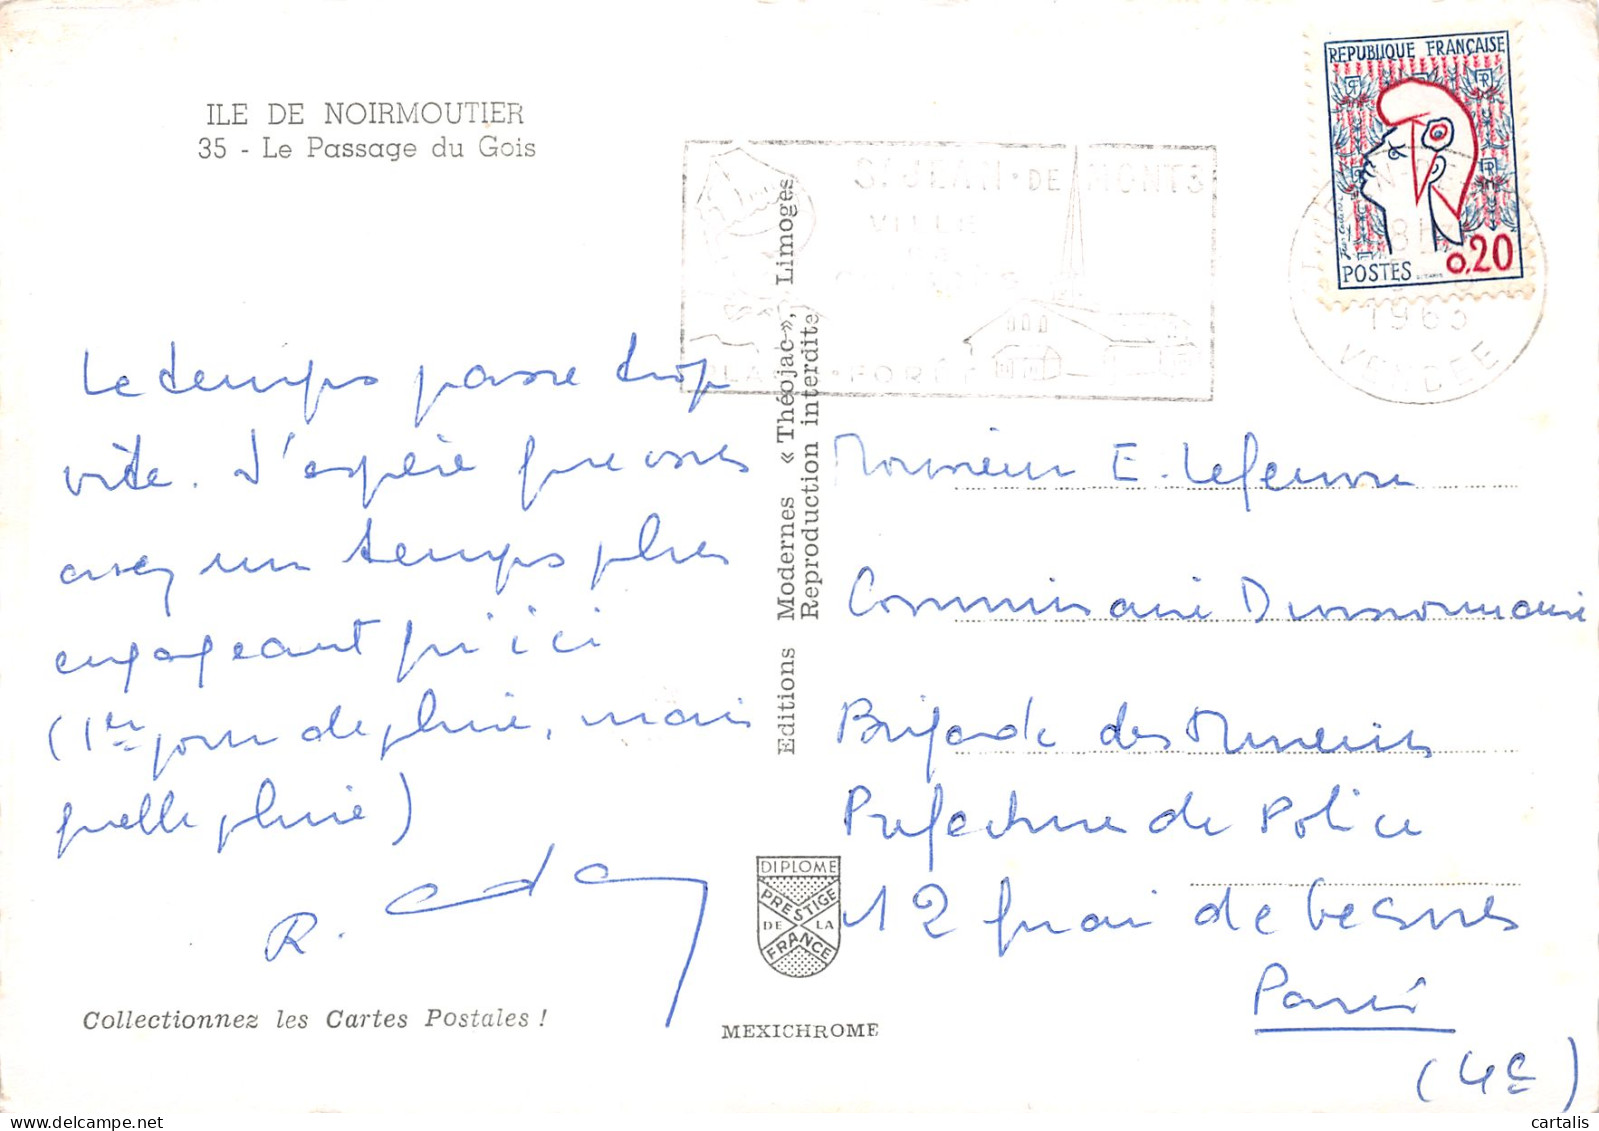 ILE DE NOIRMOUTIER
35 - Le Passage du Gois
REPUBLIQUE FRANÇAISE
POSTES 0,20
ST JEAN · DE MONTS
VILLE
PLAGE · FORET
1963
VENDEE
Le temps passe trop
vite. J'espère que vous
avez un temps plus
engageant qu'ici
(1er jour de pluie, mais
quelle pluie)
R.
Editions Modernes « Théojac », Limoges
Reproduction interdite
Monsieur E. Lefeuvre
Commissaire Divisionnaire
Brigade des Mineurs
Prefecture de Police
12 quai de Gesvres
Paris
(4e)
DIPLOME
PRESTIGE
DE LA
FRANCE
Collectionnez les Cartes Postales !
MEXICHROME
cartalis